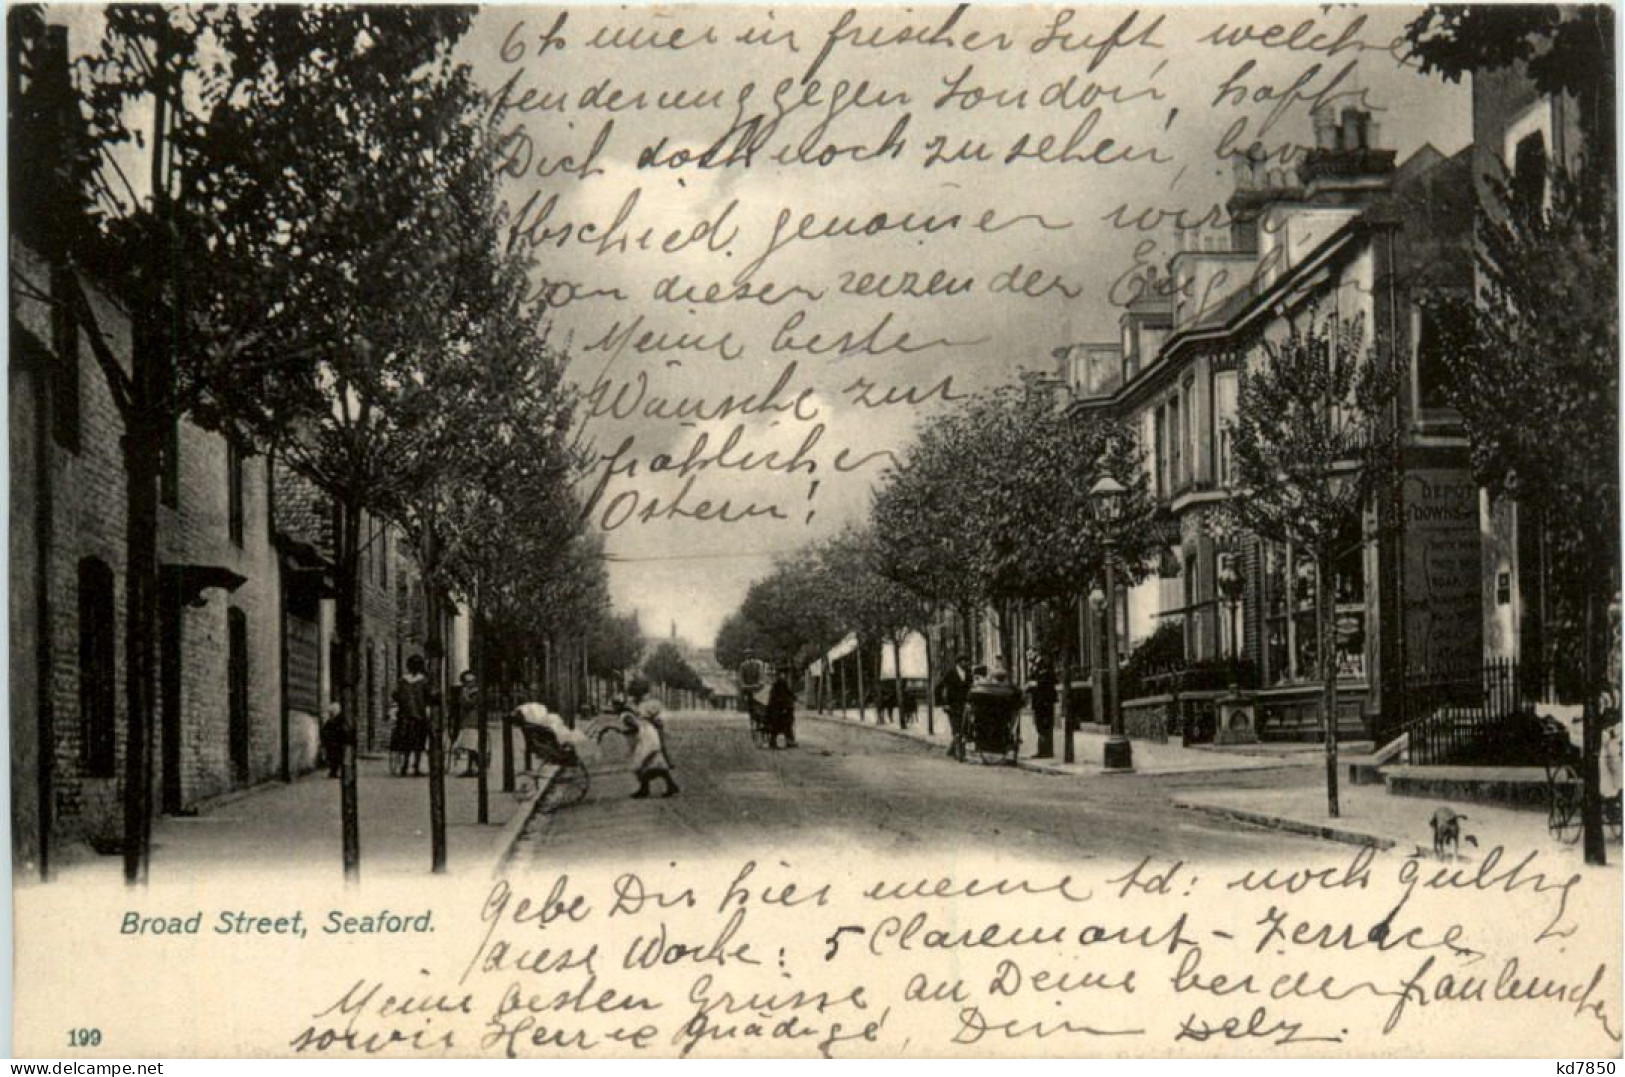 bin immer in frischer Luft, welche
gegen London, hoffe
Dich doch noch zu sehen, bevor
Abschied genommen wird
von diesen reizenden England
Meine besten
Wünsche zur
fröhlichen
Ostern!
DEPOT
DOWNS
gebe Dir hier meine Ad: noch gültig
diese Woche: 5 Claremont-Terrace
Broad Street, Seaford.
Meine besten Grüsse, an Deine beiden fräuleinchen
sowie Herr e Gnädige, Dein
199
delcampe.net
kd7850